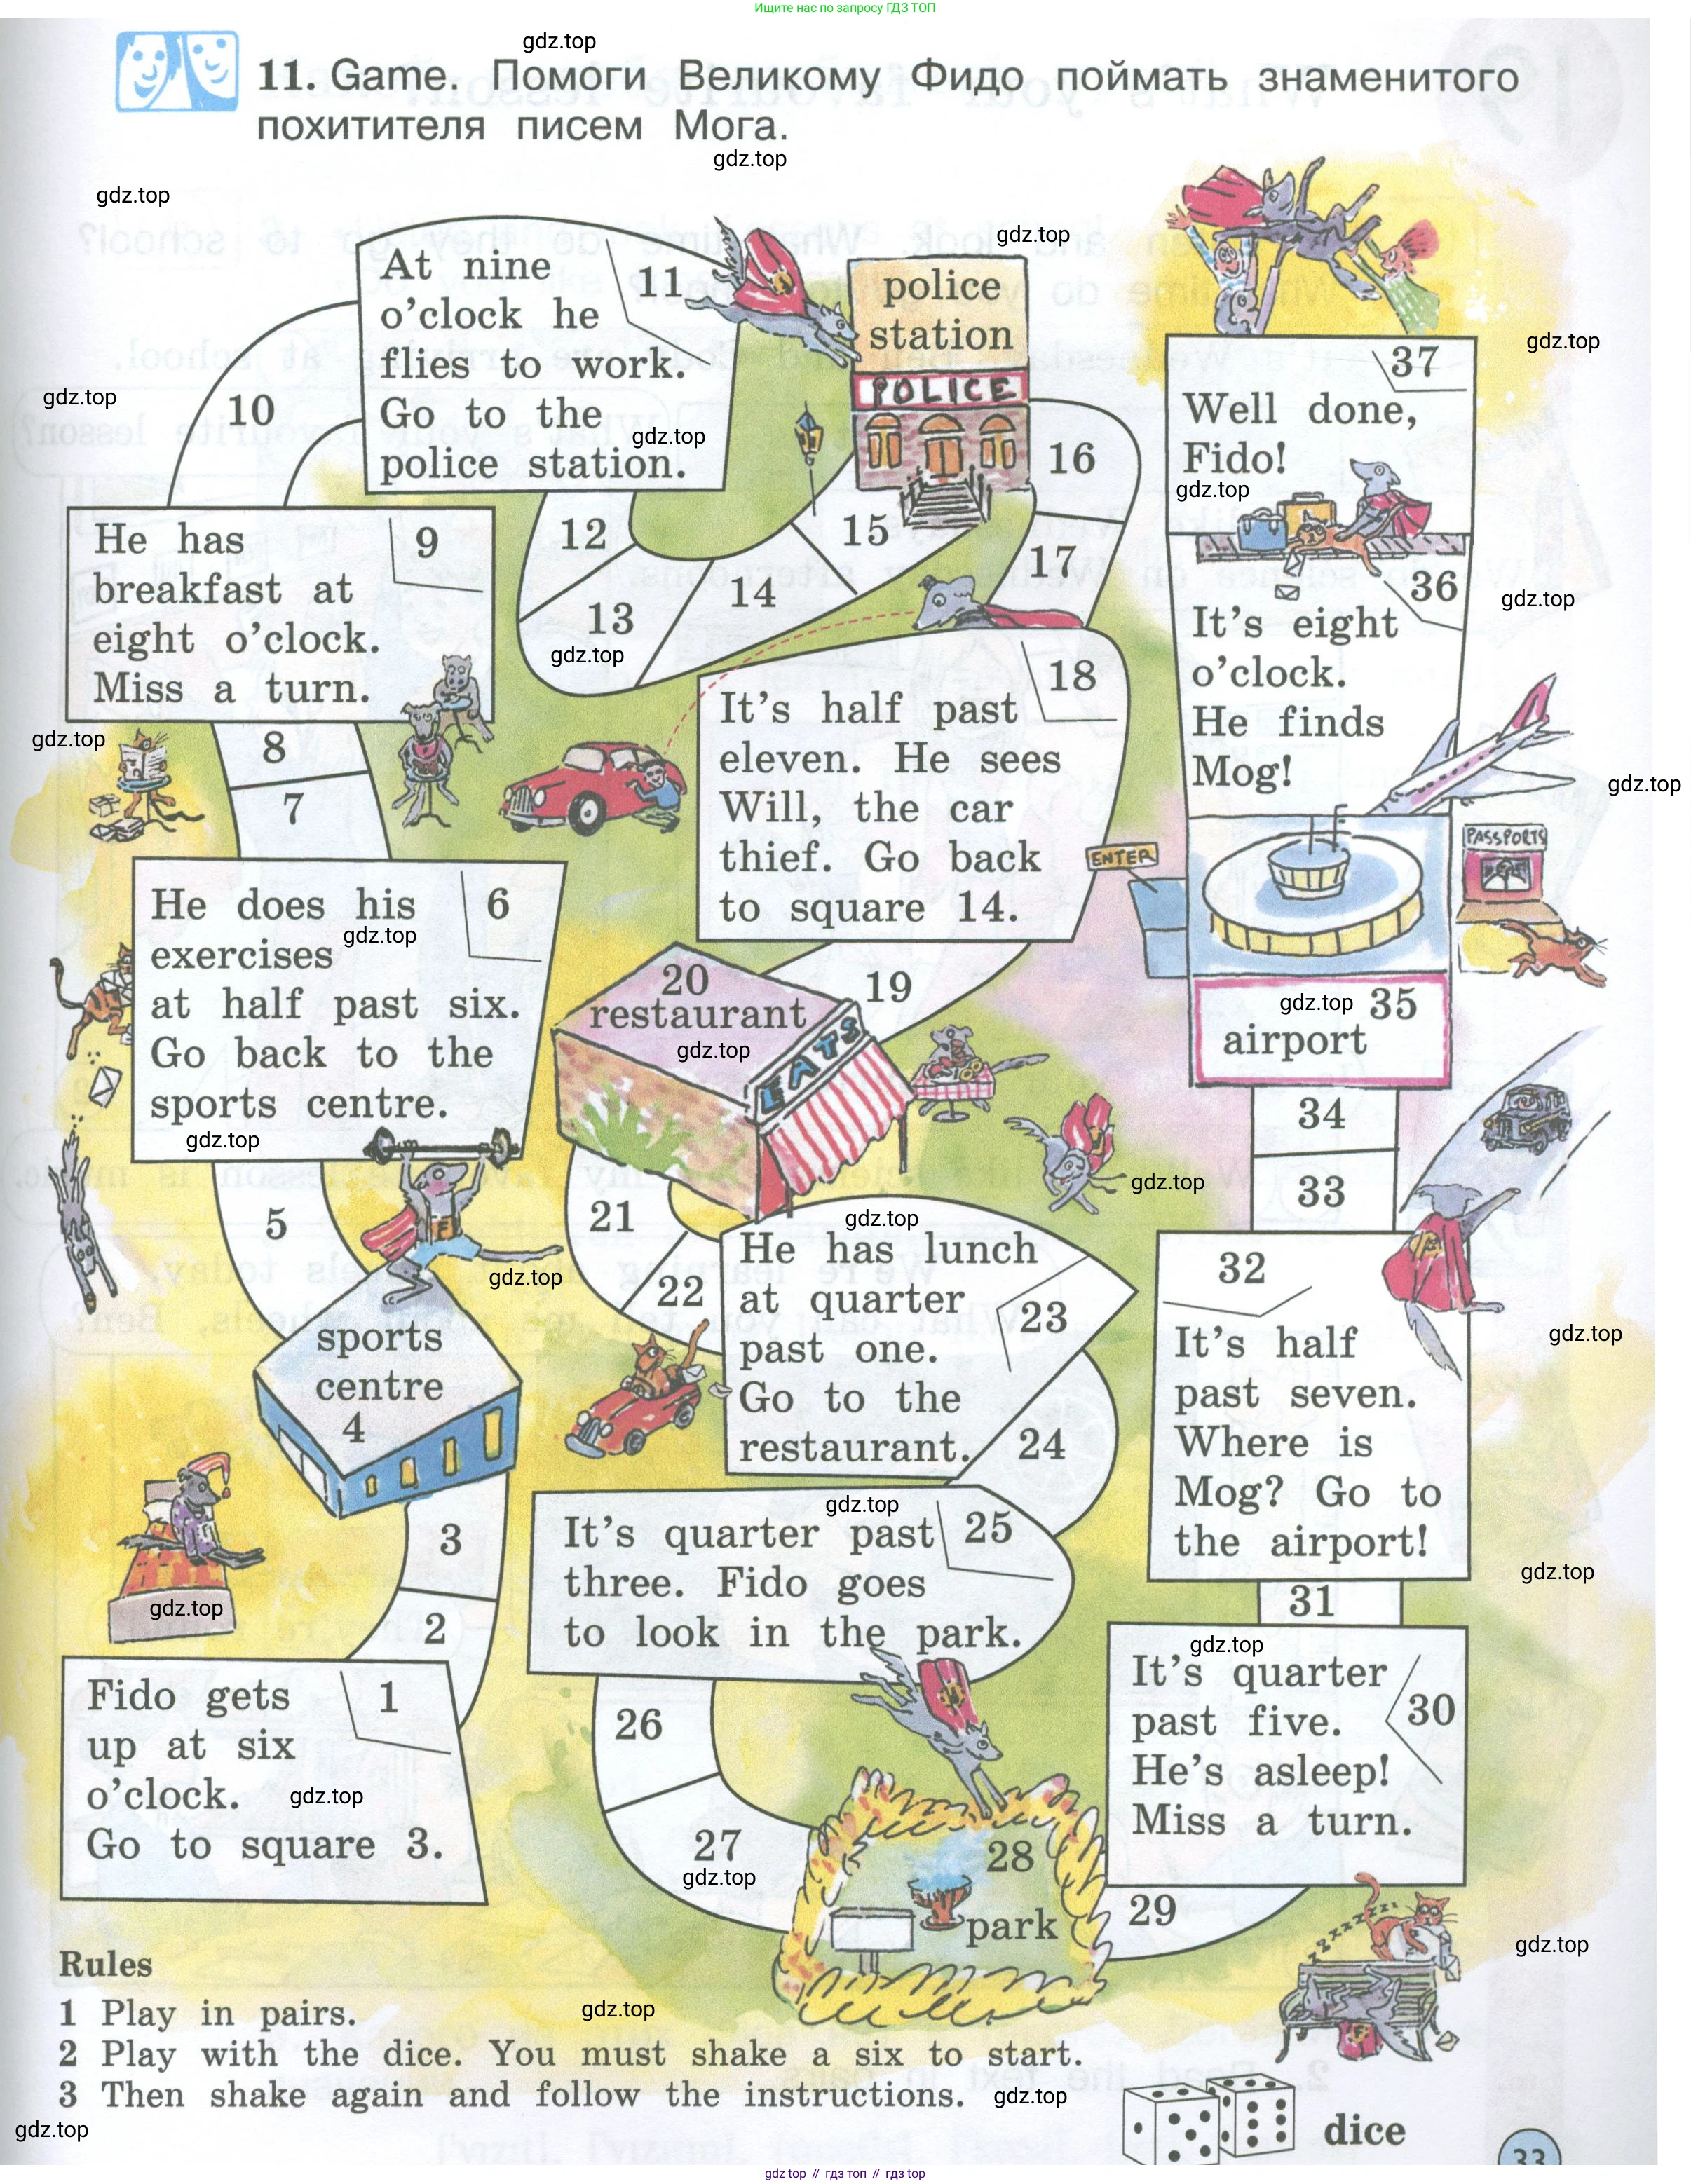 Ищите нас по запросу ГДЗ ТОП
gdz.top
11. Game. Помоги Великому Фидо поймать знаменитого
похитителя писем Мога.
gdz.top
gdz.top
gdz.top
At nine
o'clock he
flies to work.
Go to the
police station.
11
police
station
POLICE
gdz.top
37
Well done,
Fido!
gdz.top
gdz.top
gdz.top
10
16
He has
breakfast at
eight o'clock.
Miss a turn.
9
12
13
14
15
17
gdz.top
36
It's eight
o'clock.
He finds
Mog!
gdz.top
gdz.top
gdz.top
8
7
It's half past
eleven. He sees
Will, the car
thief. Go back
to square 14.
18
ENTER
PASSPORTS
He does his
exercises
at half past six.
Go back to the
sports centre.
6
gdz.top
gdz.top
20
restaurant
gdz.top
EATS
19
gdz.top
35
airport
34
33
5
F
gdz.top
21
22
gdz.top
He has lunch
at quarter
past one.
Go to the
restaurant.
23
gdz.top
24
32
It's half
past seven.
Where is
Mog? Go to
the airport!
gdz.top
sports
centre
4
3
2
gdz.top
gdz.top
It's quarter past
three. Fido goes
to look in the park.
25
gdz.top
31
gdz.top
It's quarter
past five.
He's asleep!
Miss a turn.
30
Fido gets
up at six
o'clock.
Go to square 3.
1
gdz.top
26
27
gdz.top
28
park
29
zzzzzzz
gdz.top
Rules
1 Play in pairs.
2 Play with the dice. You must shake a six to start.
3 Then shake again and follow the instructions.
gdz.top
gdz.top
gdz.top
dice
33
gdz top // гдз топ // gdz top